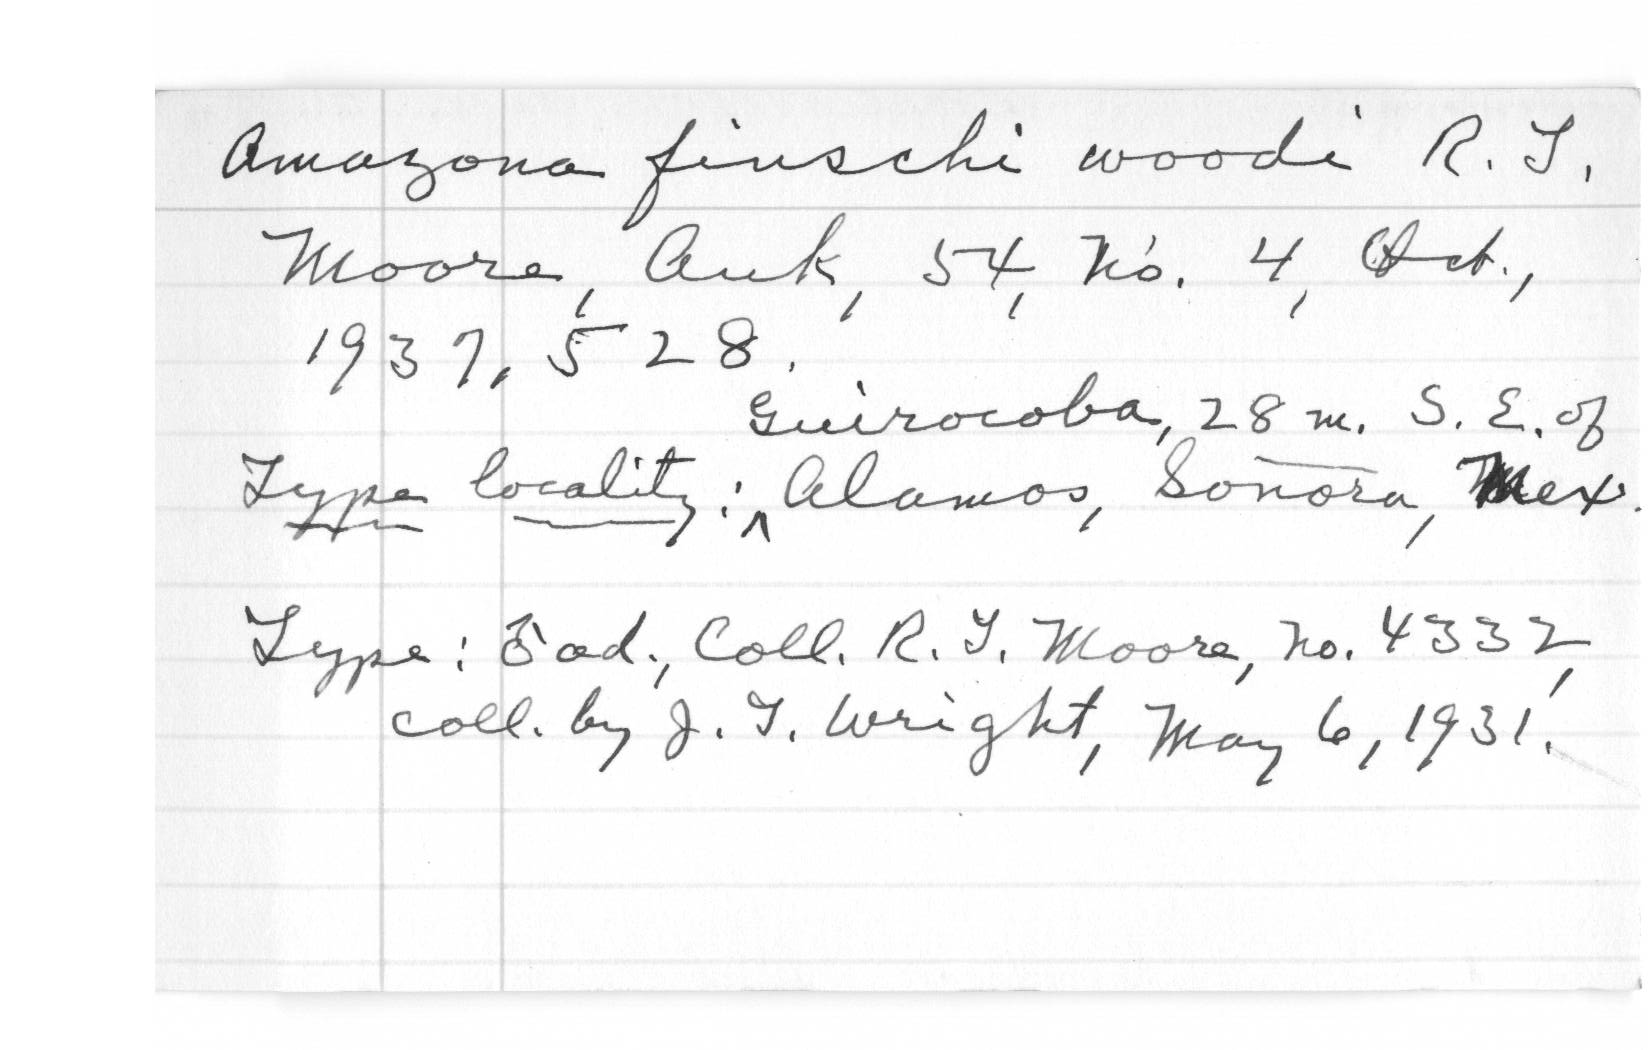 Amazona finschi woodi R. T.
Moore, Auk, 54, No. 4, Oct.,
1937, 528.
Guirocoba, 28 m. S. E. of
Type locality: ^ Alamos, Sonora, Mex.
Type: ♂ ad., Coll. R. T. Moore, no. 4332,
coll. by J. T. Wright, May 6, 1931.